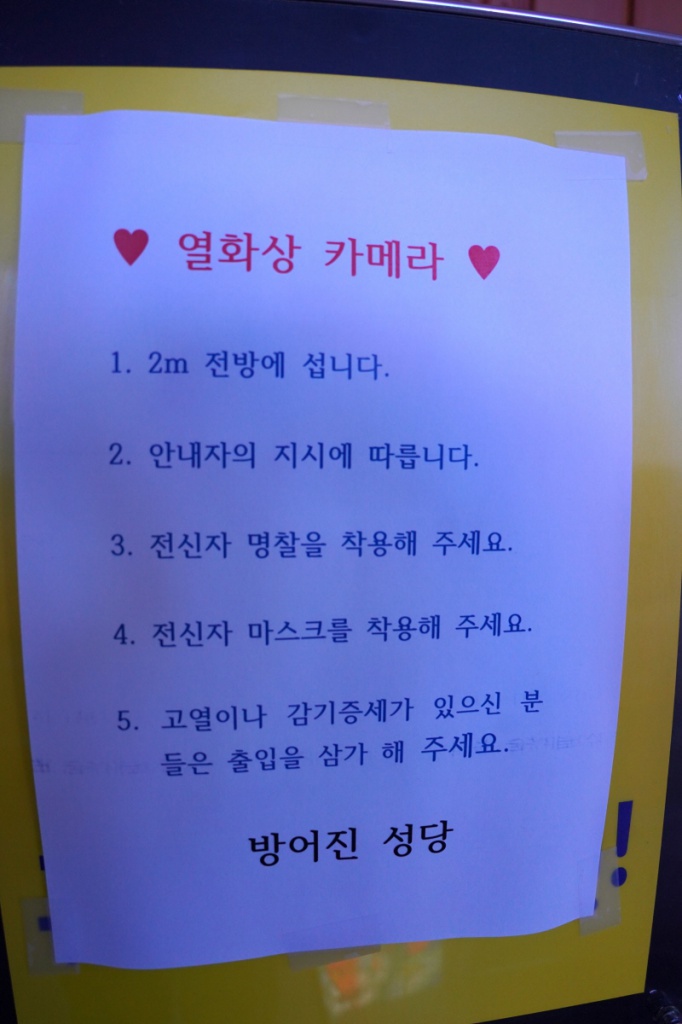 ♥ 열화상 카메라 ♥
1. 2m 전방에 섭니다.
2. 안내자의 지시에 따릅니다.
3. 전신자 명찰을 착용해 주세요.
4. 전신자 마스크를 착용해 주세요.
5. 고열이나 감기증세가 있으신 분
들은 출입을 삼가 해 주세요.
방어진 성당
!